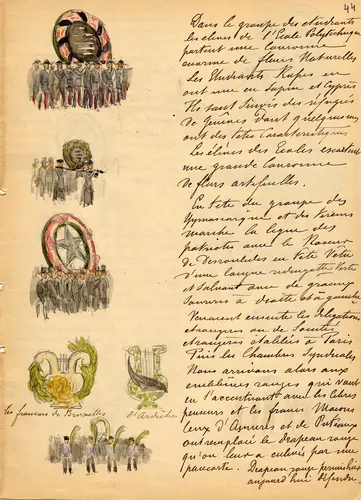 44
Dans le groupe des étudiants
les élèves de l'Ecole Polytechnique
portent une couronne
énorme de fleurs Naturelles
Les Etudiants Russes en
ont une en Sapin et Cyprès
Ils sont suivis des réfugiés
de dont quelques uns
ont des têtes Caractéristiques
Les élèves des Ecoles escortent
une grande Couronne
de fleurs artificielles.
En tête du groupe des
Gymnasiarques et des tireurs
marche la ligue des
patriotes avec le
de Derroulèdes en tête Vêtu
d'une longue redingotte Verte
et Saluant avec de grands
à droite et à gauche
Viennent ensuite les Délégations
étrangères ou de Sociétés
étrangères établies à Paris
Puis les Chambres Syndicales
Nous arrivons alors aux
emblèmes rouges qui vont
en l'accentuant avec les libres
penseurs et les francs Maçons
Ceux d'Asnières et de Puteaux
ont remplacé le drapeau rouge
qu'on leur a enlevé par une
pancarte. Drapeau rouge permis hier
aujourd'hui défendu
les francais de Bruxelles